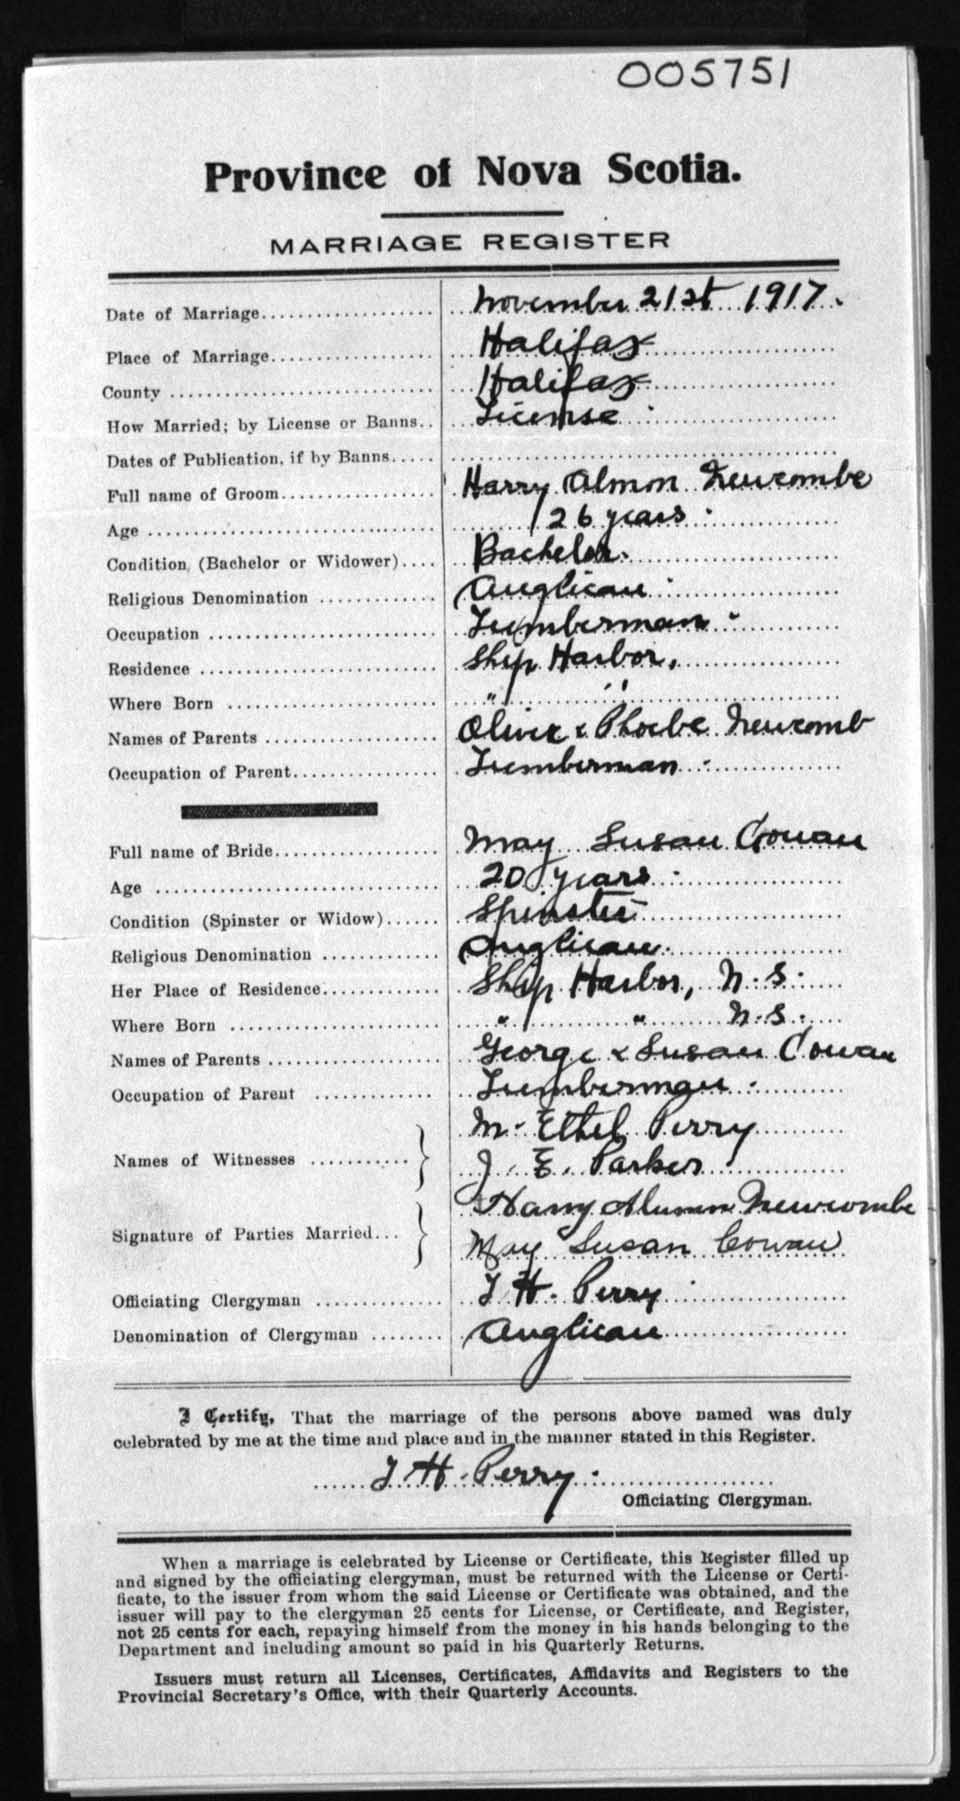 005751
Province of Nova Scotia.
MARRIAGE REGISTER
Date of Marriage.................. November 21st 1917.
Place of Marriage.................. Halifax
County .................. Halifax
How Married; by License or Banns.. License
Dates of Publication, if by Banns.....
Full name of Groom.................. Harry Almon Newcombe
Age .................. 26 years
Condition (Bachelor or Widower).... Bachelor.
Religious Denomination ............. Anglican
Occupation .................. Lumberman
Residence .................. Ship Harbor,
Where Born .................. " "
Names of Parents .................. Oliver & Phoebe Newcomb
Occupation of Parent.................. Lumberman
Full name of Bride.................. May Susan Cowan
Age .................. 20 years
Condition (Spinster or Widow)...... Spinster
Religious Denomination ............. Anglican
Her Place of Residence............. Ship Harbor, N.S.
Where Born .................. " " N.S.
Names of Parents .................. George & Susan Cowan
Occupation of Parent ............. Lumberman
Names of Witnesses ........... } M. Ethel Perry
J. E. Parker
Signature of Parties Married... } Harry Almon Newcombe
May Susan Cowan
Officiating Clergyman ............. T H. Perry
Denomination of Clergyman ........ Anglican
I Certify, That the marriage of the persons above named was duly
celebrated by me at the time and place and in the manner stated in this Register.
T. H. Perry
Officiating Clergyman.
When a marriage is celebrated by License or Certificate, this Register filled up
and signed by the officiating clergyman, must be returned with the License or Certi-
ficate, to the issuer from whom the said License or Certificate was obtained, and the
issuer will pay to the clergyman 25 cents for License, or Certificate, and Register,
not 25 cents for each, repaying himself from the money in his hands belonging to the
Department and including amount so paid in his Quarterly Returns.
Issuers must return all Licenses, Certificates, Affidavits and Registers to the
Provincial Secretary's Office, with their Quarterly Accounts.